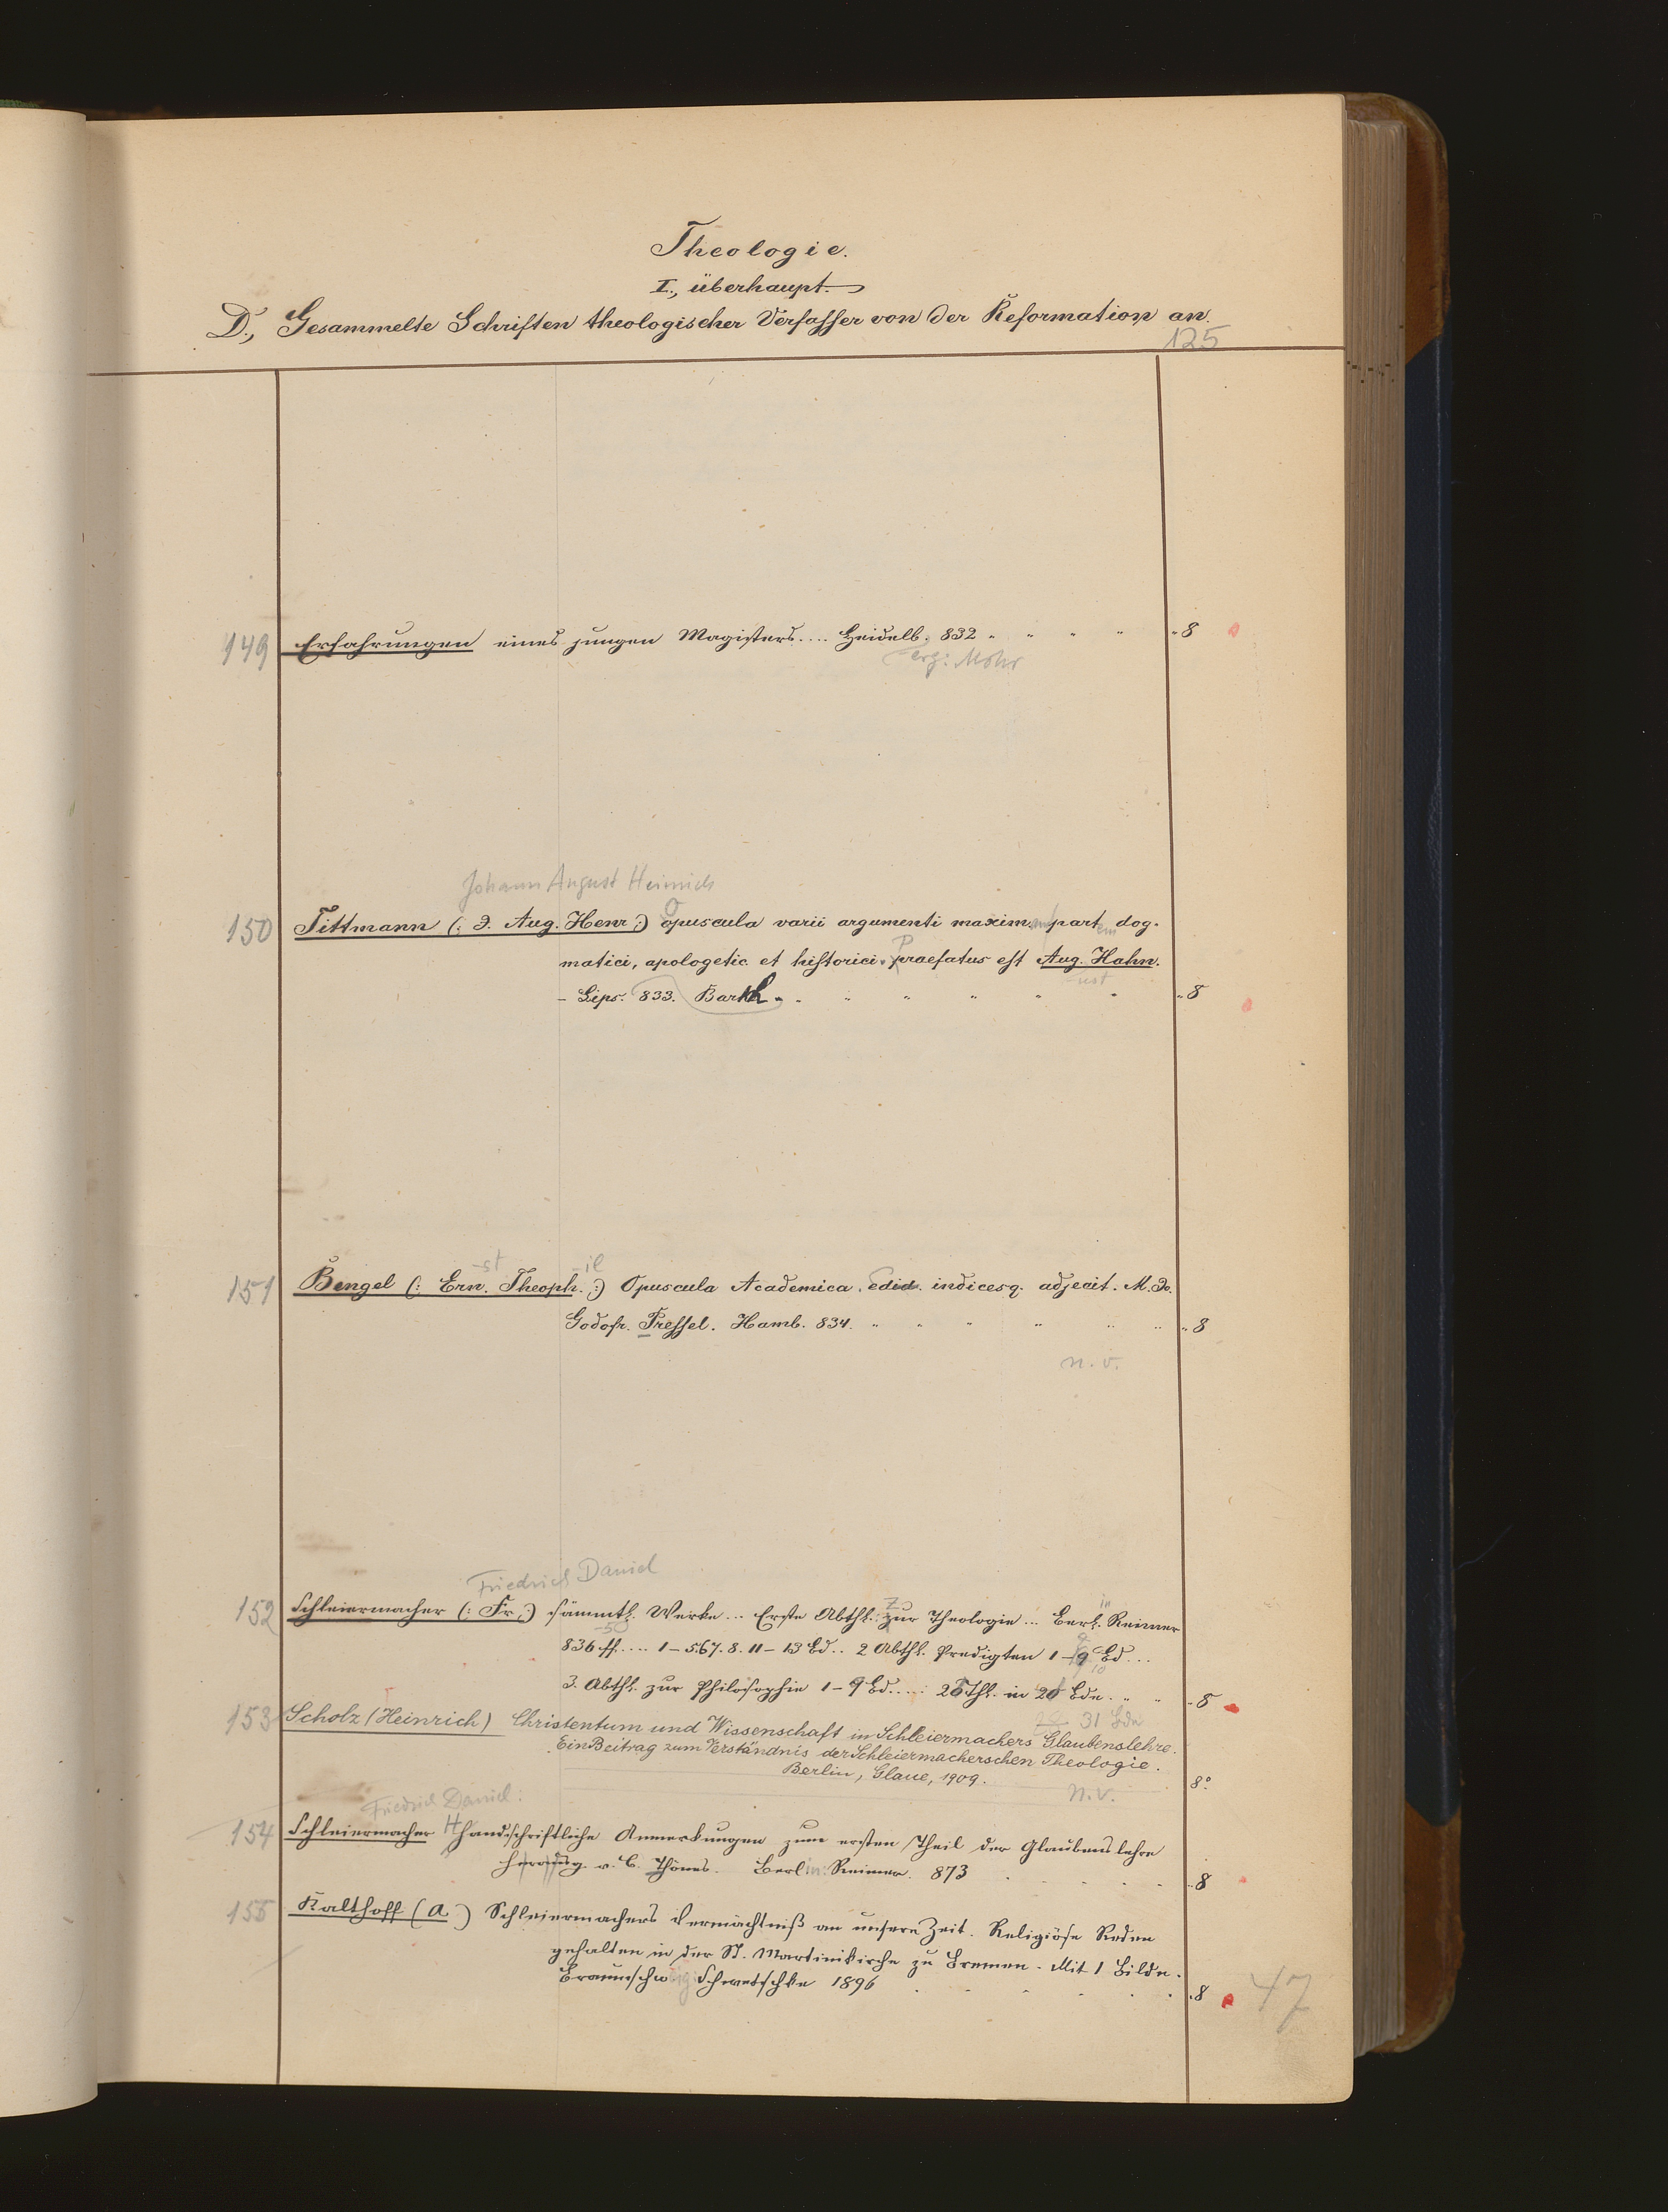 Theologie.
I., überhaupt.
D., Gesammelte Schriften theologischer Verfasser von der Reformation an.
125
149 Erfahrungen eines jungen Magisters.... Heidelb. 832 " " " " " 8
erg: Mohr
Johann August Heinrich
150 Tittmann (: J. Aug. Henr :) Opuscula varii argumenti maxim. part. dog-
matici, apologetic. et historici. Praefatus est Aug. Hahn.
- Lips. 833. Barth " " " " " " " 8
151 Bengel (: Ern. Theoph. :) Opuscula Academica. edid. indicesq. adjecit. M. Jo.
Godofr. Pressel. Hamb. 834. " " " " " " " 8
n. v.
Friedrich Daniel
152 Schleiermacher (: Fr. :) sämmtl. Werke ... Erste Abthl. zur Theologie ... Berl. Reimer
836 ff.... 1-5.6.7.8.11-13 Bd.. 2 Abthl. Predigten 1-9 Bd...
3. Abthl. zur Philosophie 1-9 Bd..... Thl. in Bdn. " " 8
31 Bde
153 Scholz (Heinrich) Christentum und Wissenschaft in Schleiermachers Glaubenslehre.
Ein Beitrag zum Verständnis der Schleiermacherschen Theologie.
Berlin, Glaue, 1909. 8°
n. v.
Friedrich Daniel:
154 Schleiermacher Handschriftliche Anmerkungen zum ersten Theil der Glaubenslehre
herausg. v. C. Thönes. Berlin: Reimer. 873 . . . . . 8
155 Kalthoff (A.) Schleiermachers Vermächtniß an unsere Zeit. Religiöse Reden
gehalten in der St. Martinikirche zu Bremen. Mit 1 Bilde.
Braunschweig Schwetschke 1896 . . . . . . 8
47